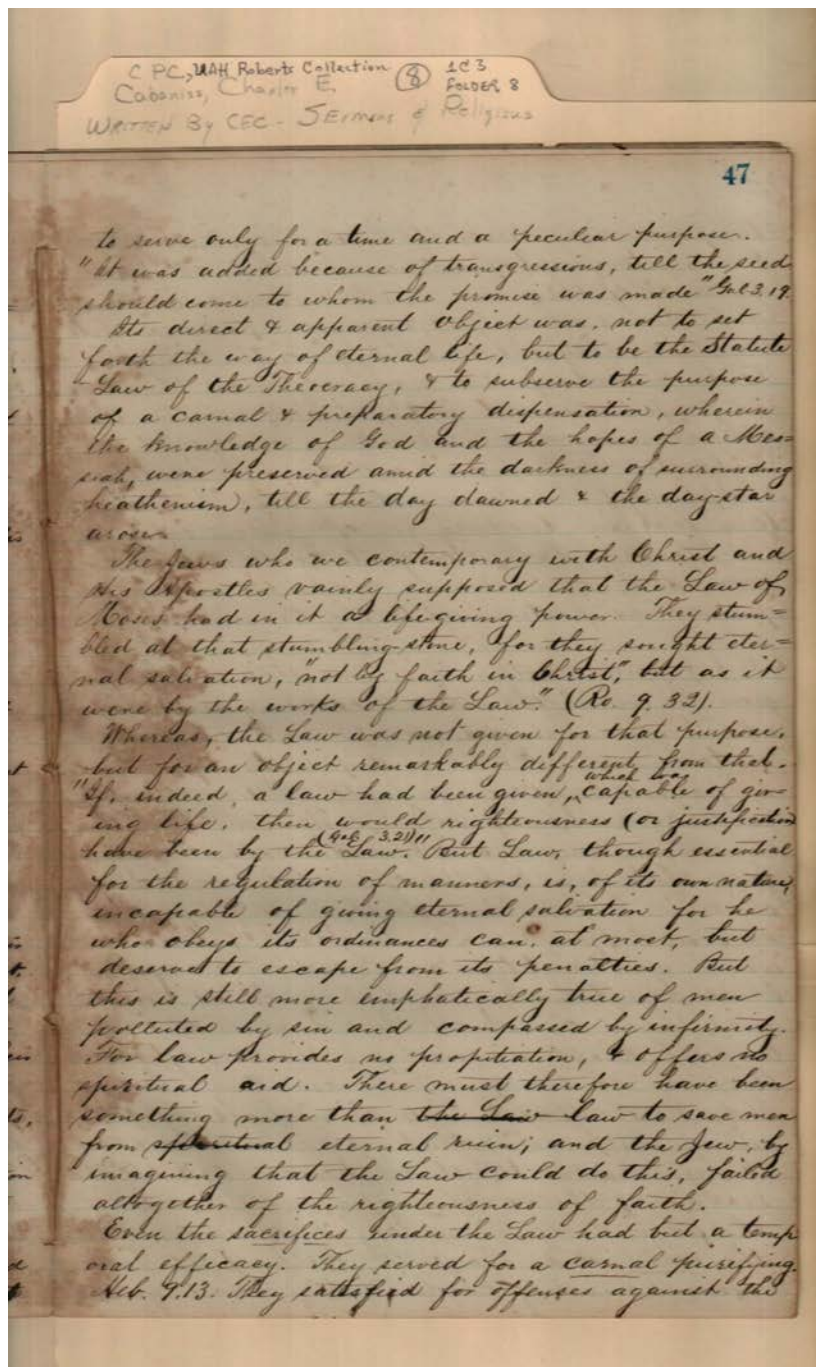 C PC, UAH Roberts Collection (8) 1C3
Cabaniss, Charles E. FOLDER 8
WRITTEN By CEC - SERMONS & Religious
47
to serve only for a time and a peculiar purpose.
"It was added because of transgressions, till the seed
should come to whom the promise was made" Gal 3.19.
Its direct & apparent object was, not to set
forth the way of eternal life, but to be the Statute
Law of the Theocracy, & to subserve the purpose
of a carnal & preparatory dispensation, wherein
the knowledge of God and the hopes of a Mes=
siah, were preserved amid the darkness of surrounding
heathenism, till the day dawned & the day-star
arose.
The Jews who we contemporary with Christ and
His Apostles vainly supposed that the Law of
Moses had in it a life-giving power. They stum=
bled at that stumbling-stone, for they sought eter=
nal salvation, "not by faith in Christ", but as it
were by the works of the Law." (Ro. 9.32).
Whereas, the Law was not given for that purpose,
but for an object remarkably different from that.
"If, indeed, a law had been given, which was capable of giv-
ing life, then would righteousness (or justification
have been by the Law. (Gal. 3.21)" But Law, though essential
for the regulation of manners, is, of its own nature,
incapable of giving eternal salvation for he
who obeys its ordinances can, at most, but
deserve to escape from its penalties. But
this is still more emphatically true of men
polluted by sin and compassed by infirmity.
For law provides no propitiation, & offers no
spiritual aid. There must therefore have been
something more than the Law law to save men
from spiritual eternal ruin; and the Jew, by
imagining that the Law could do this, failed
altogether of the righteousness of faith.
Even the sacrifices under the Law had but a temp
oral efficacy. They served for a carnal purifying.
Heb. 9.13. They satisfied for offenses against the